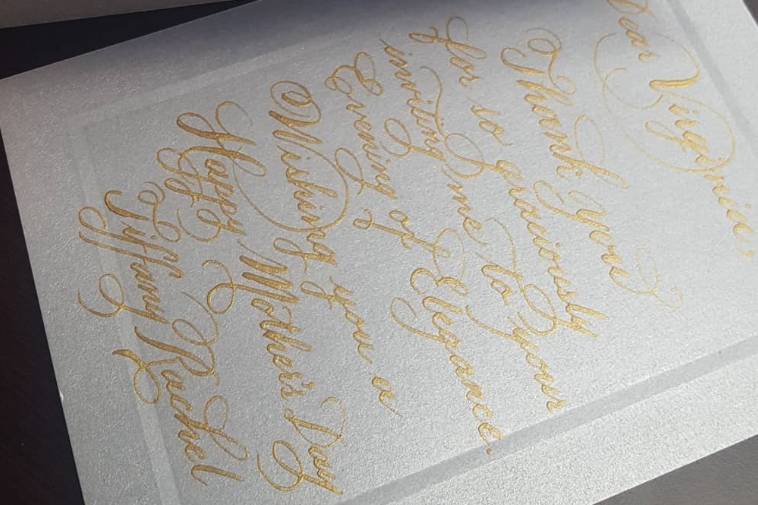 Dear Virginia,
Thank you
for so graciously
inviting me to your
Evening of Elegance.
Wishing you a
Happy Mother's Day
Tiffany Rachel